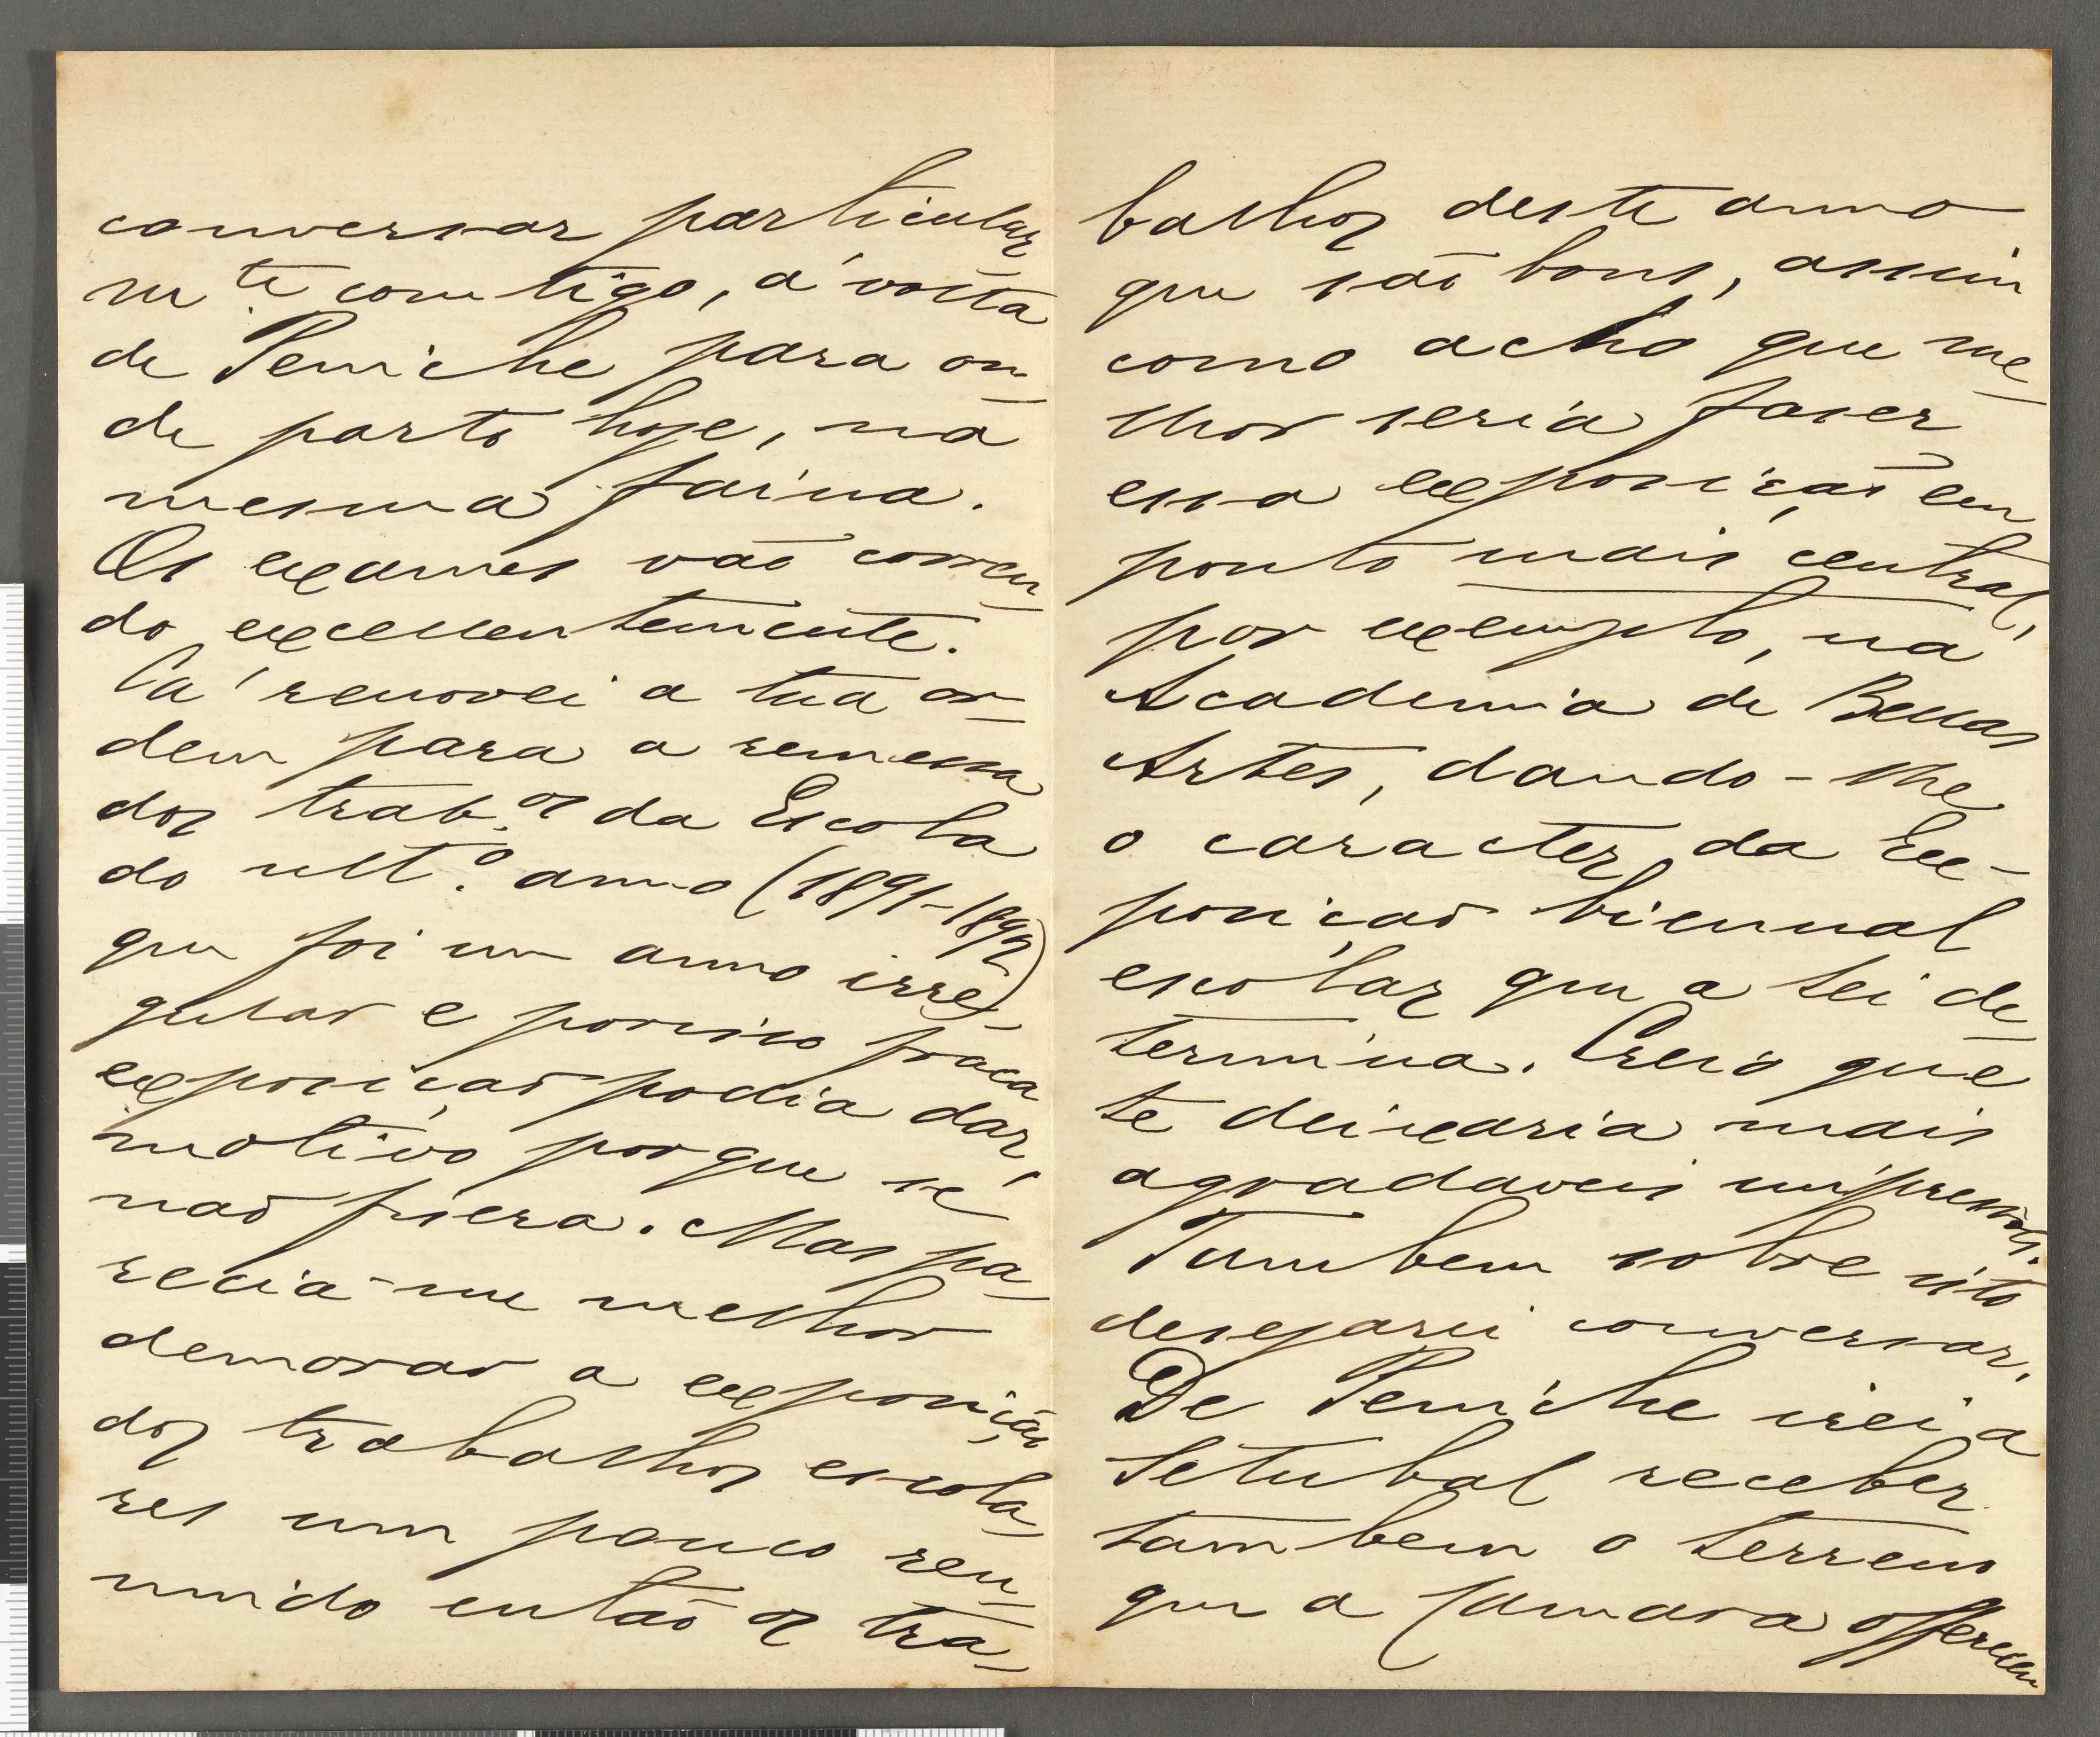 conversar particular
m.te comtigo, á volta
de Peniche para on-
de parto hoje, na
mesma faina.
Os exames vão corren-
do excellentemente.
Cá renovei a tua or-
dem para a remessa
dos trab.os da Escola
do ult.o anno (1891-1892)
que foi um anno irre-
gular e por isso fraca
exposição podia dar,
motivo porque se
não fizera. Mas pa-
recia-me melhor
demorar a exposição
dos trabalhos escola-
res um pouco reu-
nindo então os tra-
balhos deste anno
que são bons, assim
como acho que me-
lhor seria fazer
essa exposição em
ponto mais central,
por exemplo, na
Academia de Bellas
Artes, dando-lhe
o caracter da Ex-
posição biennal
escolar que a lei de-
termina. Creio que
te deixaria mais
agradaveis impressões.
Tambem sobre isto
desejarei conversar.
De Peniche irei a
Setubal receber
tambem o terreno
que a Camara offereceu